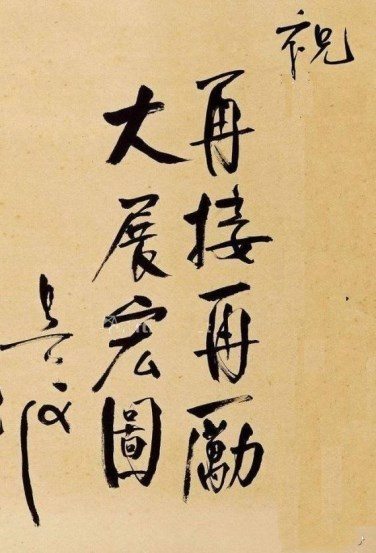 祝
再接再勵
大展宏圖